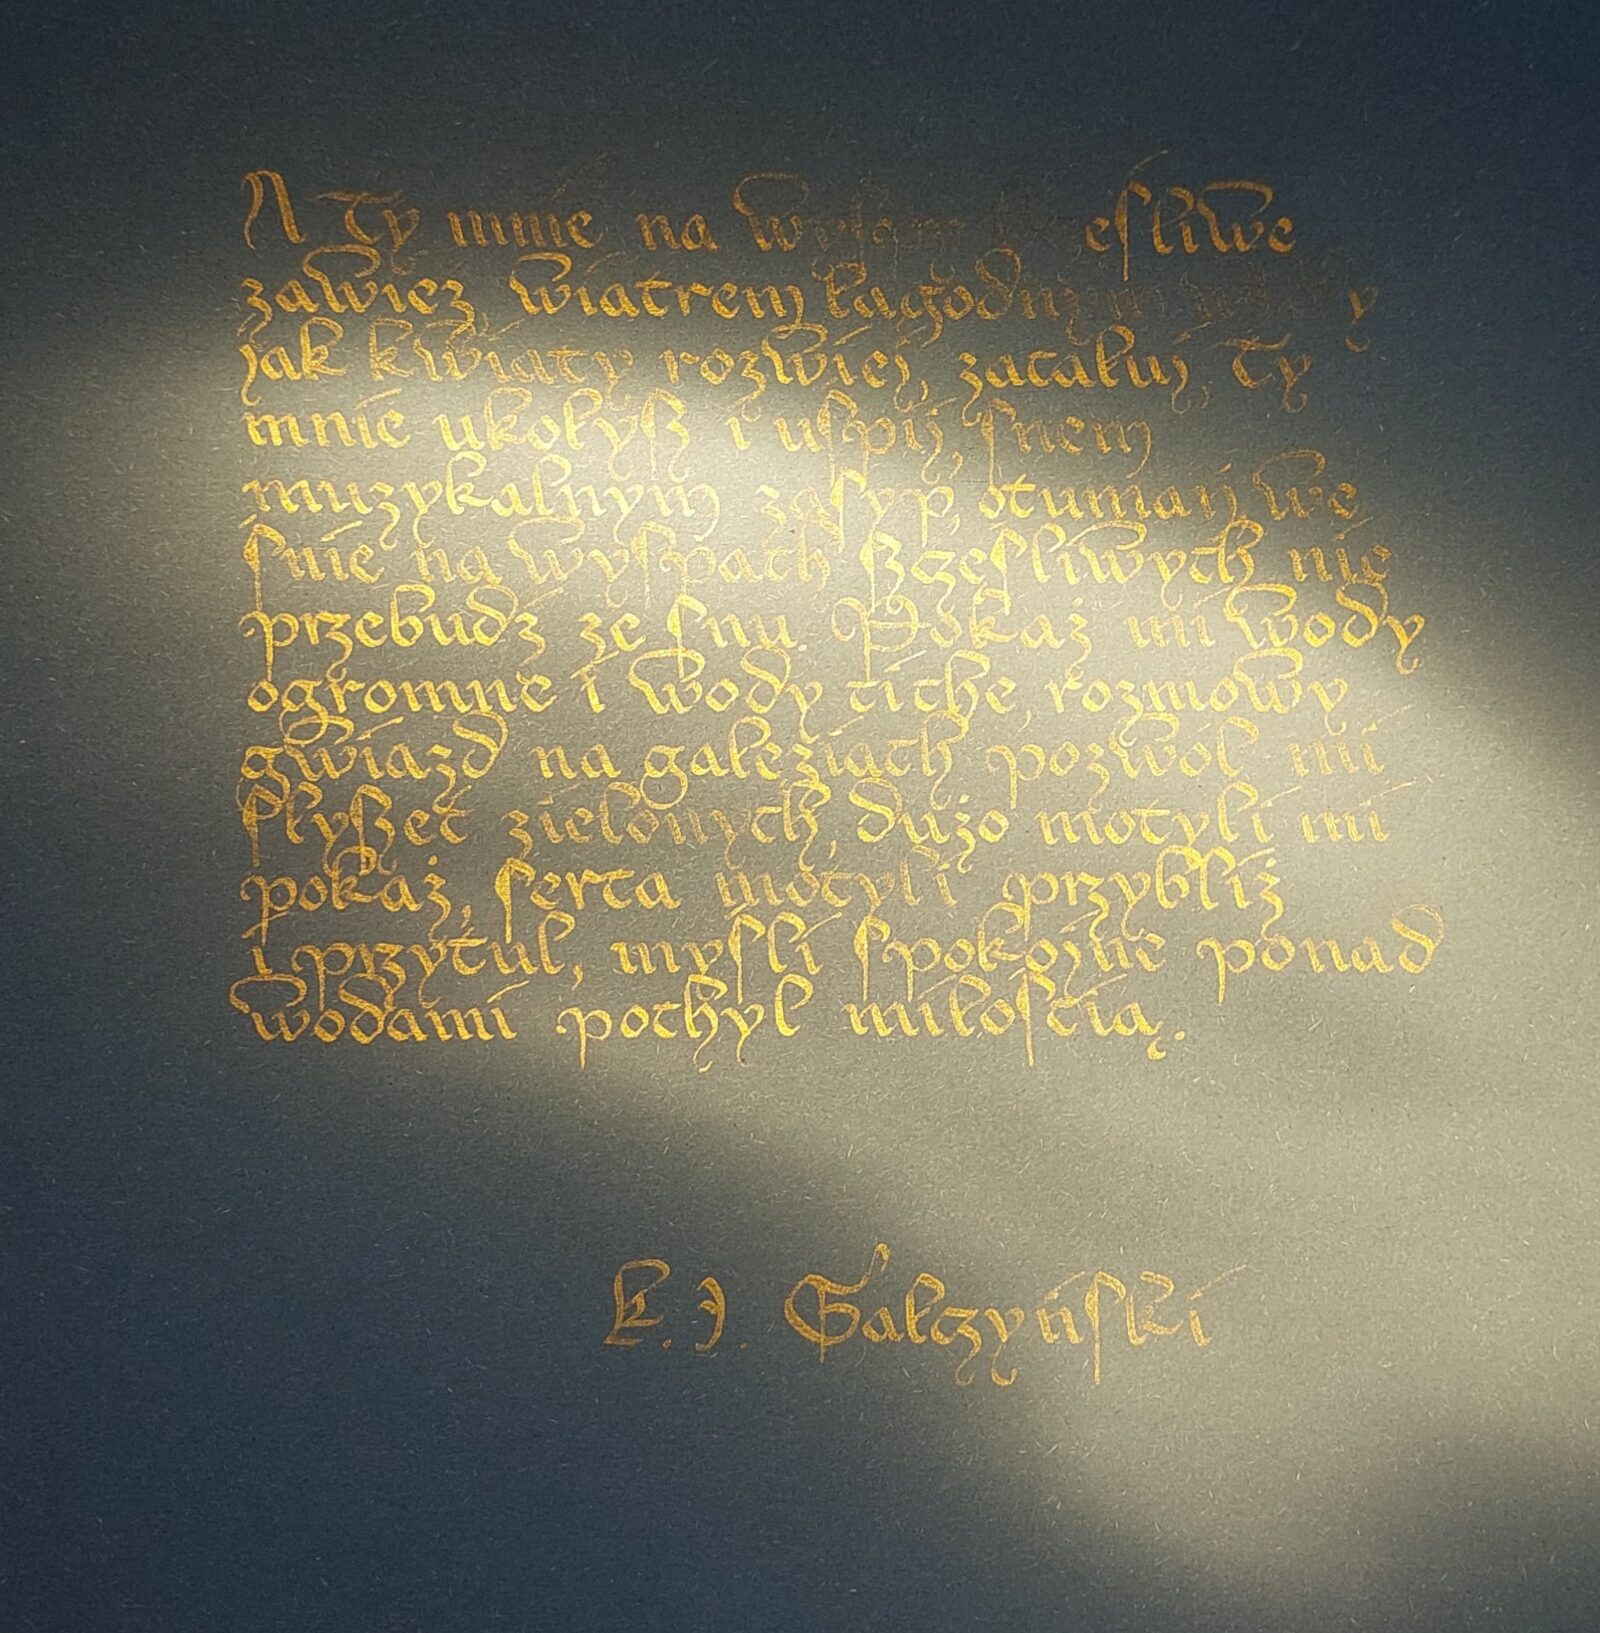 A Ty mnie na
zawieź, wiatrem łagodnym
jak kwiaty rozwiej, zacałuj, Ty
mnie ukołysz i uśpij, snem
muzykalnym zasyp, otumań we
śnie na wyspach szczęśliwych nie
przebudź ze snu. Pokaż mi wody
ogromne i wody ciche, rozmowy
gwiazd na gałęziach pozwól mi
słyszeć zielonych, dużo motyli mi
pokaż, serca motyli przybliż
i przytul, myśli spokojne ponad
wodami pochyl miłością.
K. J. Gałczyński